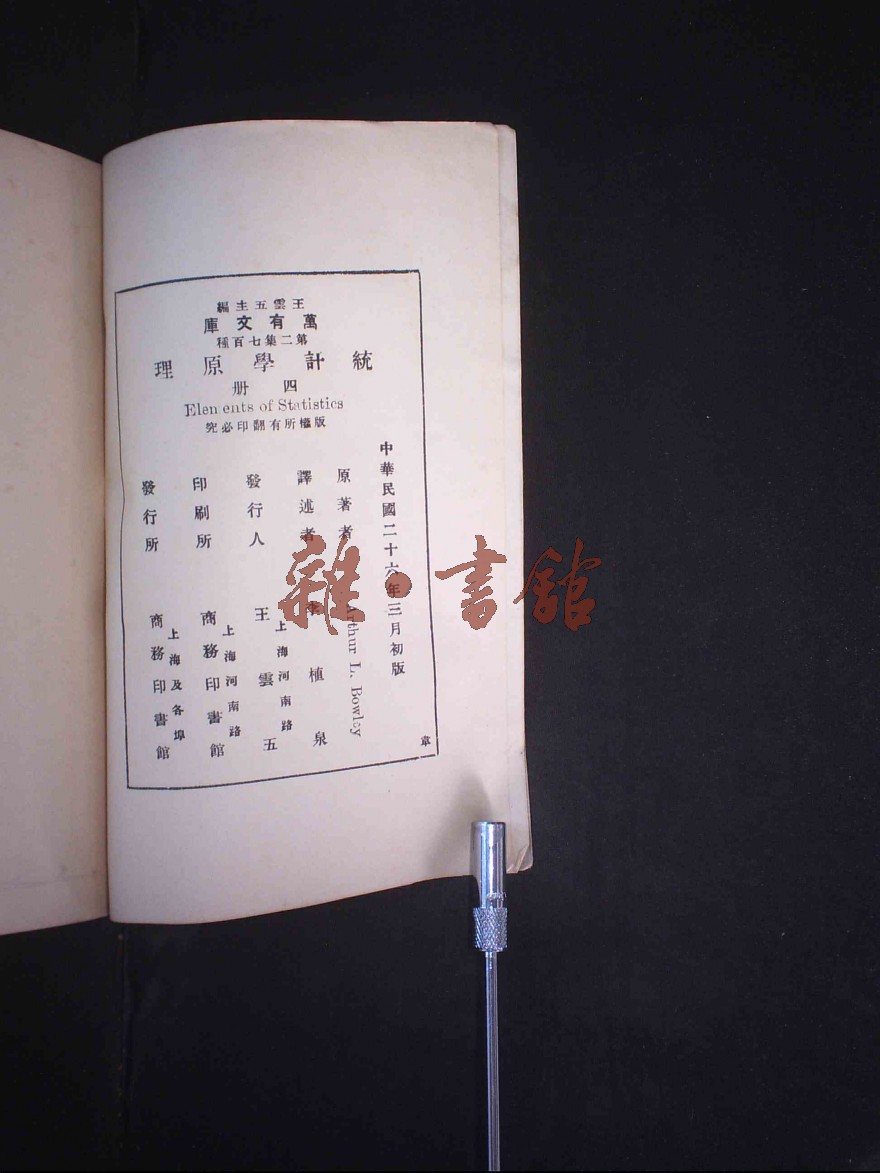 王雲五主編
萬有文庫
第二集七百種
統計學原理
四冊
Elements of Statistics
版權所有翻印必究
中華民國二十六年三月初版
原著者 Arthur L. Bowley
譯述者 李植泉
發行人 王雲五
上海河南路
印刷所 商務印書館
上海河南路
發行所 商務印書館
上海及各埠
雜·書館